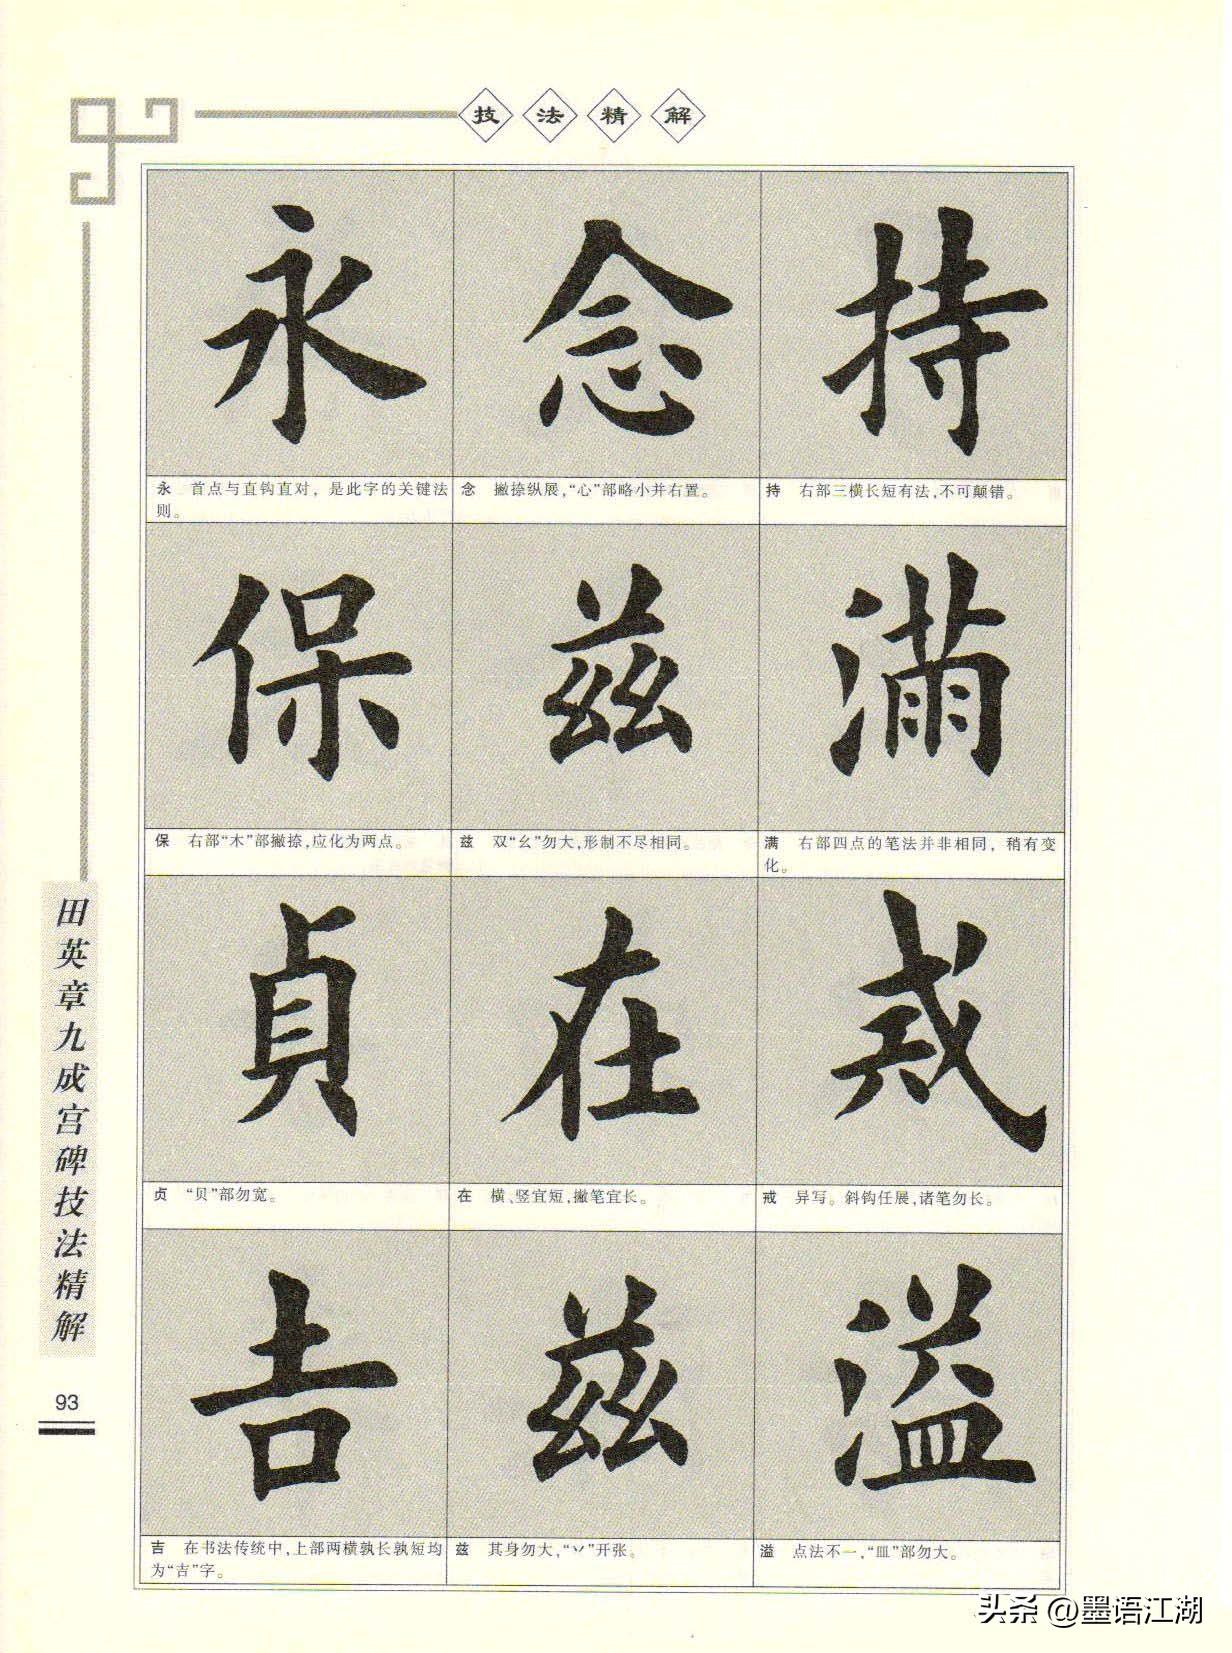 技法精解
永 念 持
永 首点与直钩直对，是此字的关键法
则。
念 撇捺纵展，“心”部略小并右置。
持 右部三横长短有法，不可颠错。
保 兹 满
保 右部“木”部撇捺，应化为两点。
兹 双“幺”勿大，形制不尽相同。
满 右部四点的笔法并非相同，稍有变
化。
貞 在 戒
贞 “贝”部勿宽。
在 横、竖宜短，撇笔宜长。
戒 异写。斜钩任展，诸笔勿长。
吉 兹 溢
吉 在书法传统中，上部两横孰长孰短均
为“吉”字。
兹 其身勿大，“丷”开张。
溢 点法不一，“皿”部勿大。
田英章九成宫碑技法精解
93
头条 @墨语江湖